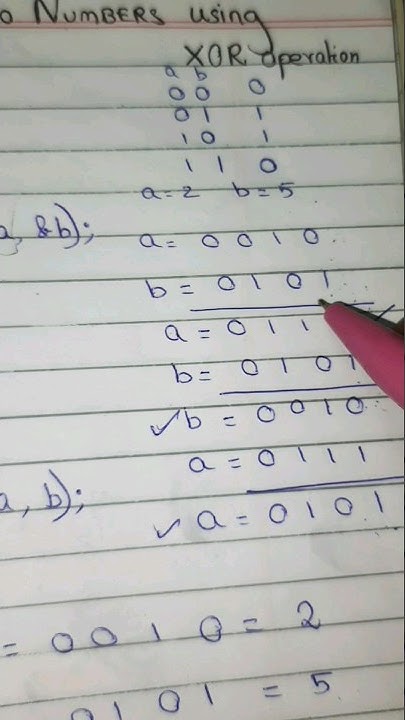 o NUMBERS using
XOR operation
a b
0 0 0
0 1 1
1 0 1
1 1 0
a=2 b=5
a, &b);
a= 0 0 1 0
b= 0 1 0 1
a= 0 1 1
b= 0 1 0 1
✓b= 0 0 1 0
a= 0 1 1 1
a, b);
✓ a= 0 1 0 1
= 0 0 1 0 = 2
0 1 0 1 = 5